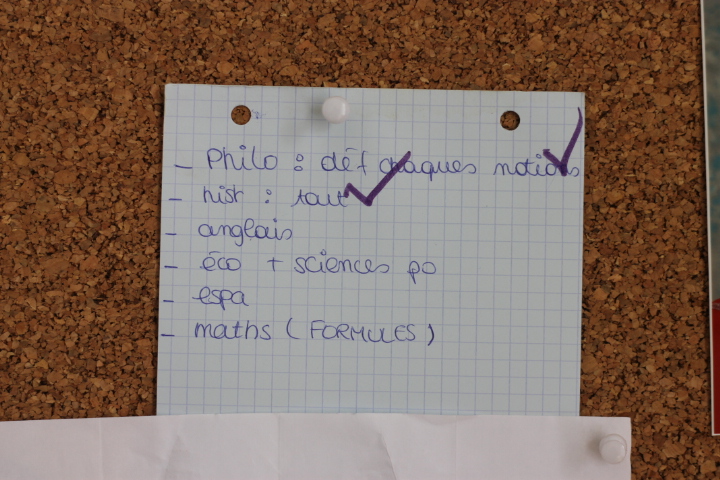 - Philo : déf chaques notions
- hist : tout
- anglais
- éco + sciences po
- espa
- maths (FORMULES)